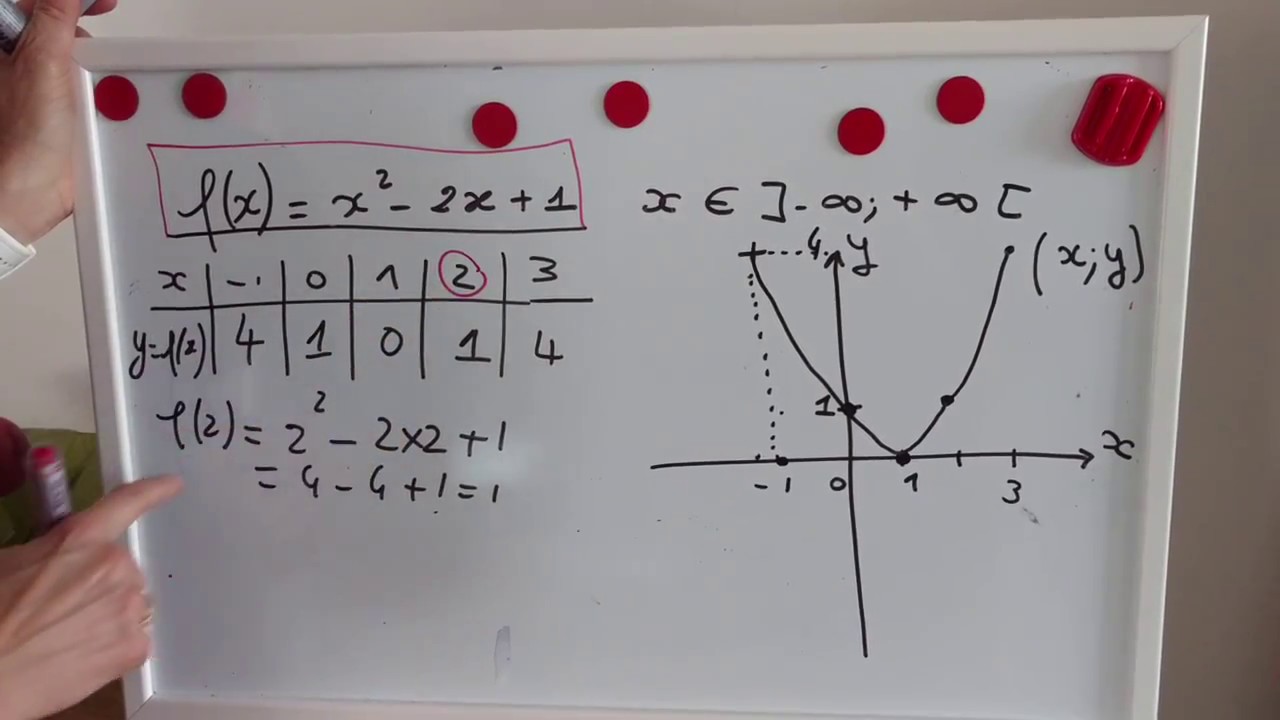 f(x) = x² - 2x + 1
x | -1 | 0 | 1 | 2 | 3
y=f(x) | 4 | 1 | 0 | 1 | 4
f(2) = 2² - 2×2 + 1
= 4 - 4 + 1 = 1
x ∈ ]-∞; +∞ [
4 y (x; y)
1
x
-1 0 1 3